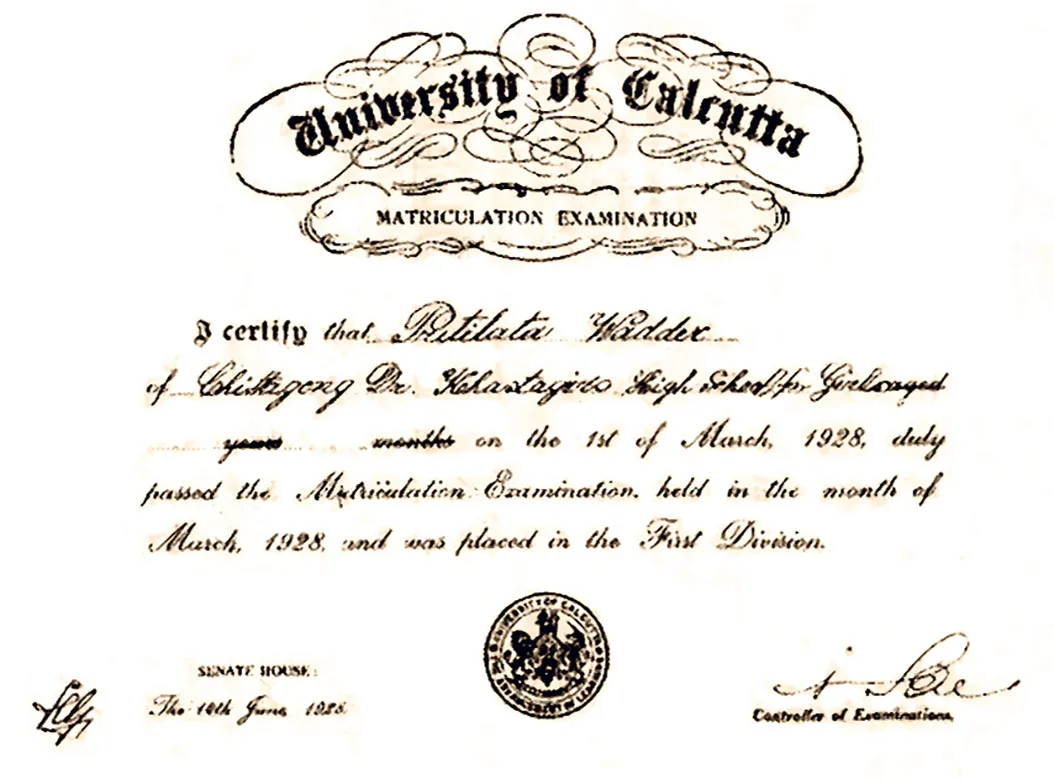 University of Calcutta
MATRICULATION EXAMINATION
I certify that Pritilata Wadder
of Chittagong Dr. Khastagirs High School for Girls aged
years months on the 1st of March, 1928, duly
passed the Matriculation Examination, held in the month of
March, 1928, and was placed in the First Division.
SENATE HOUSE:
The 14th June, 1928
Controller of Examinations.